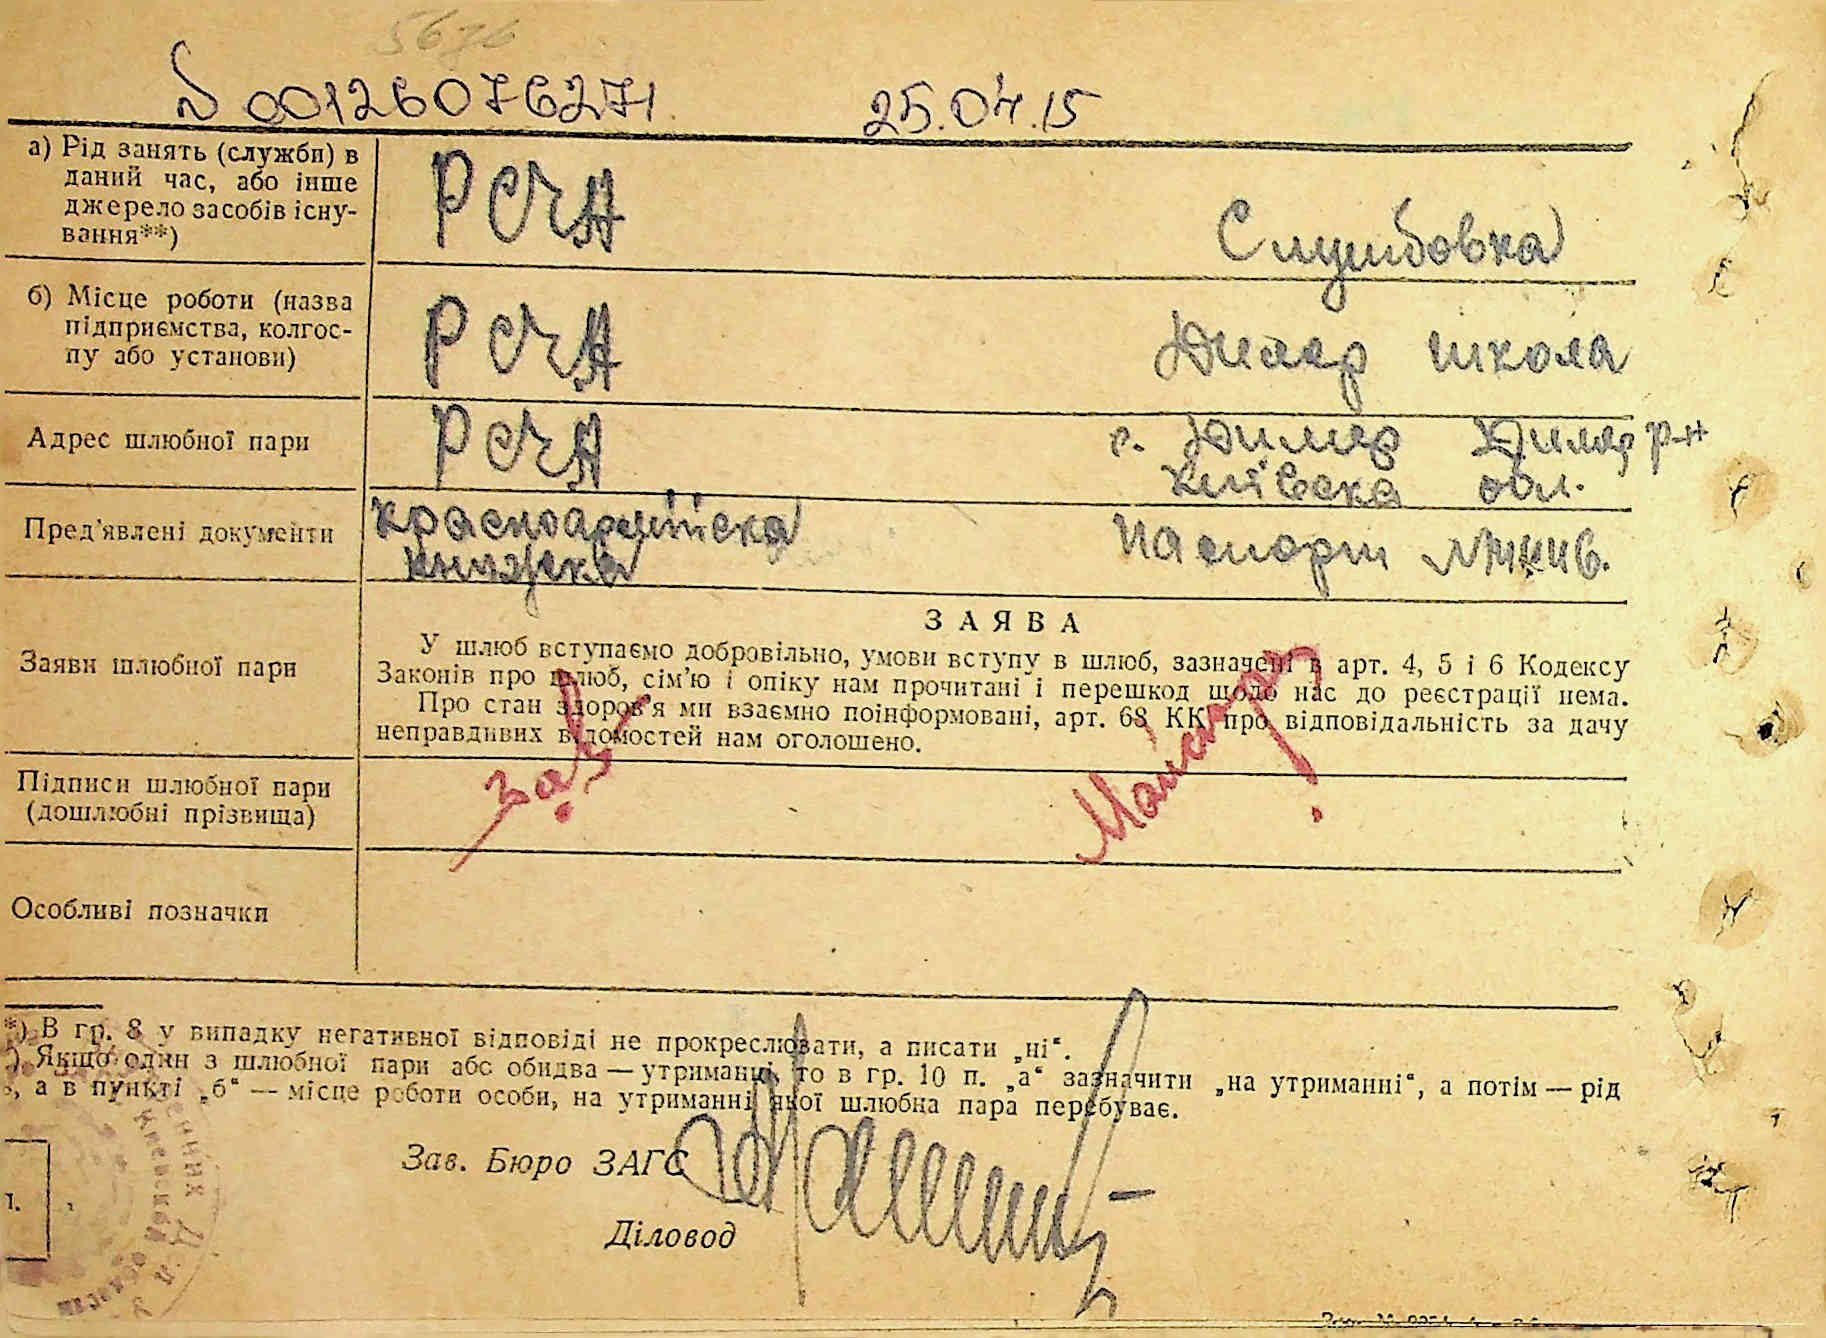 5676
№ 00126076271 25.04.15
а) Рід занять (служби) в
даний час, або інше
джерело засобів існу-
вання**)
РСЧА Службовка
б) Місце роботи (назва
підприємства, колгос-
пу або установи)
РСЧА Димер школа
Адрес шлюбної пари
РСЧА с. Димер Димер р-н
Київска обл.
Пред'явлені документи
Красноармійска
книжка
Паспорт
ЗАЯВА
Заяви шлюбної пари
У шлюб вступаємо добровільно, умови вступу в шлюб, зазначені в арт. 4, 5 і 6 Кодексу
Законів про шлюб, сім'ю і опіку нам прочитані і перешкод щодо нас до реєстрації нема.
Про стан здоров'я ми взаємно поінформовані, арт. 68 КК про відповідальність за дачу
неправдивих відомостей нам оголошено.
Підписи шлюбної пари
(дошлюбні прізвища)
Особливі позначки
*) В гр. 8 у випадку негативної відповіді не прокреслювати, а писати „ні“.
). Якщо один з шлюбної пари або обидва — утриманці, то в гр. 10 п. „а“ зазначити „на утриманні“, а потім — рід
, а в пункті „б“ — місце роботи особи, на утриманні якої шлюбна пара перебуває.
Зав. Бюро ЗАГС
Діловод